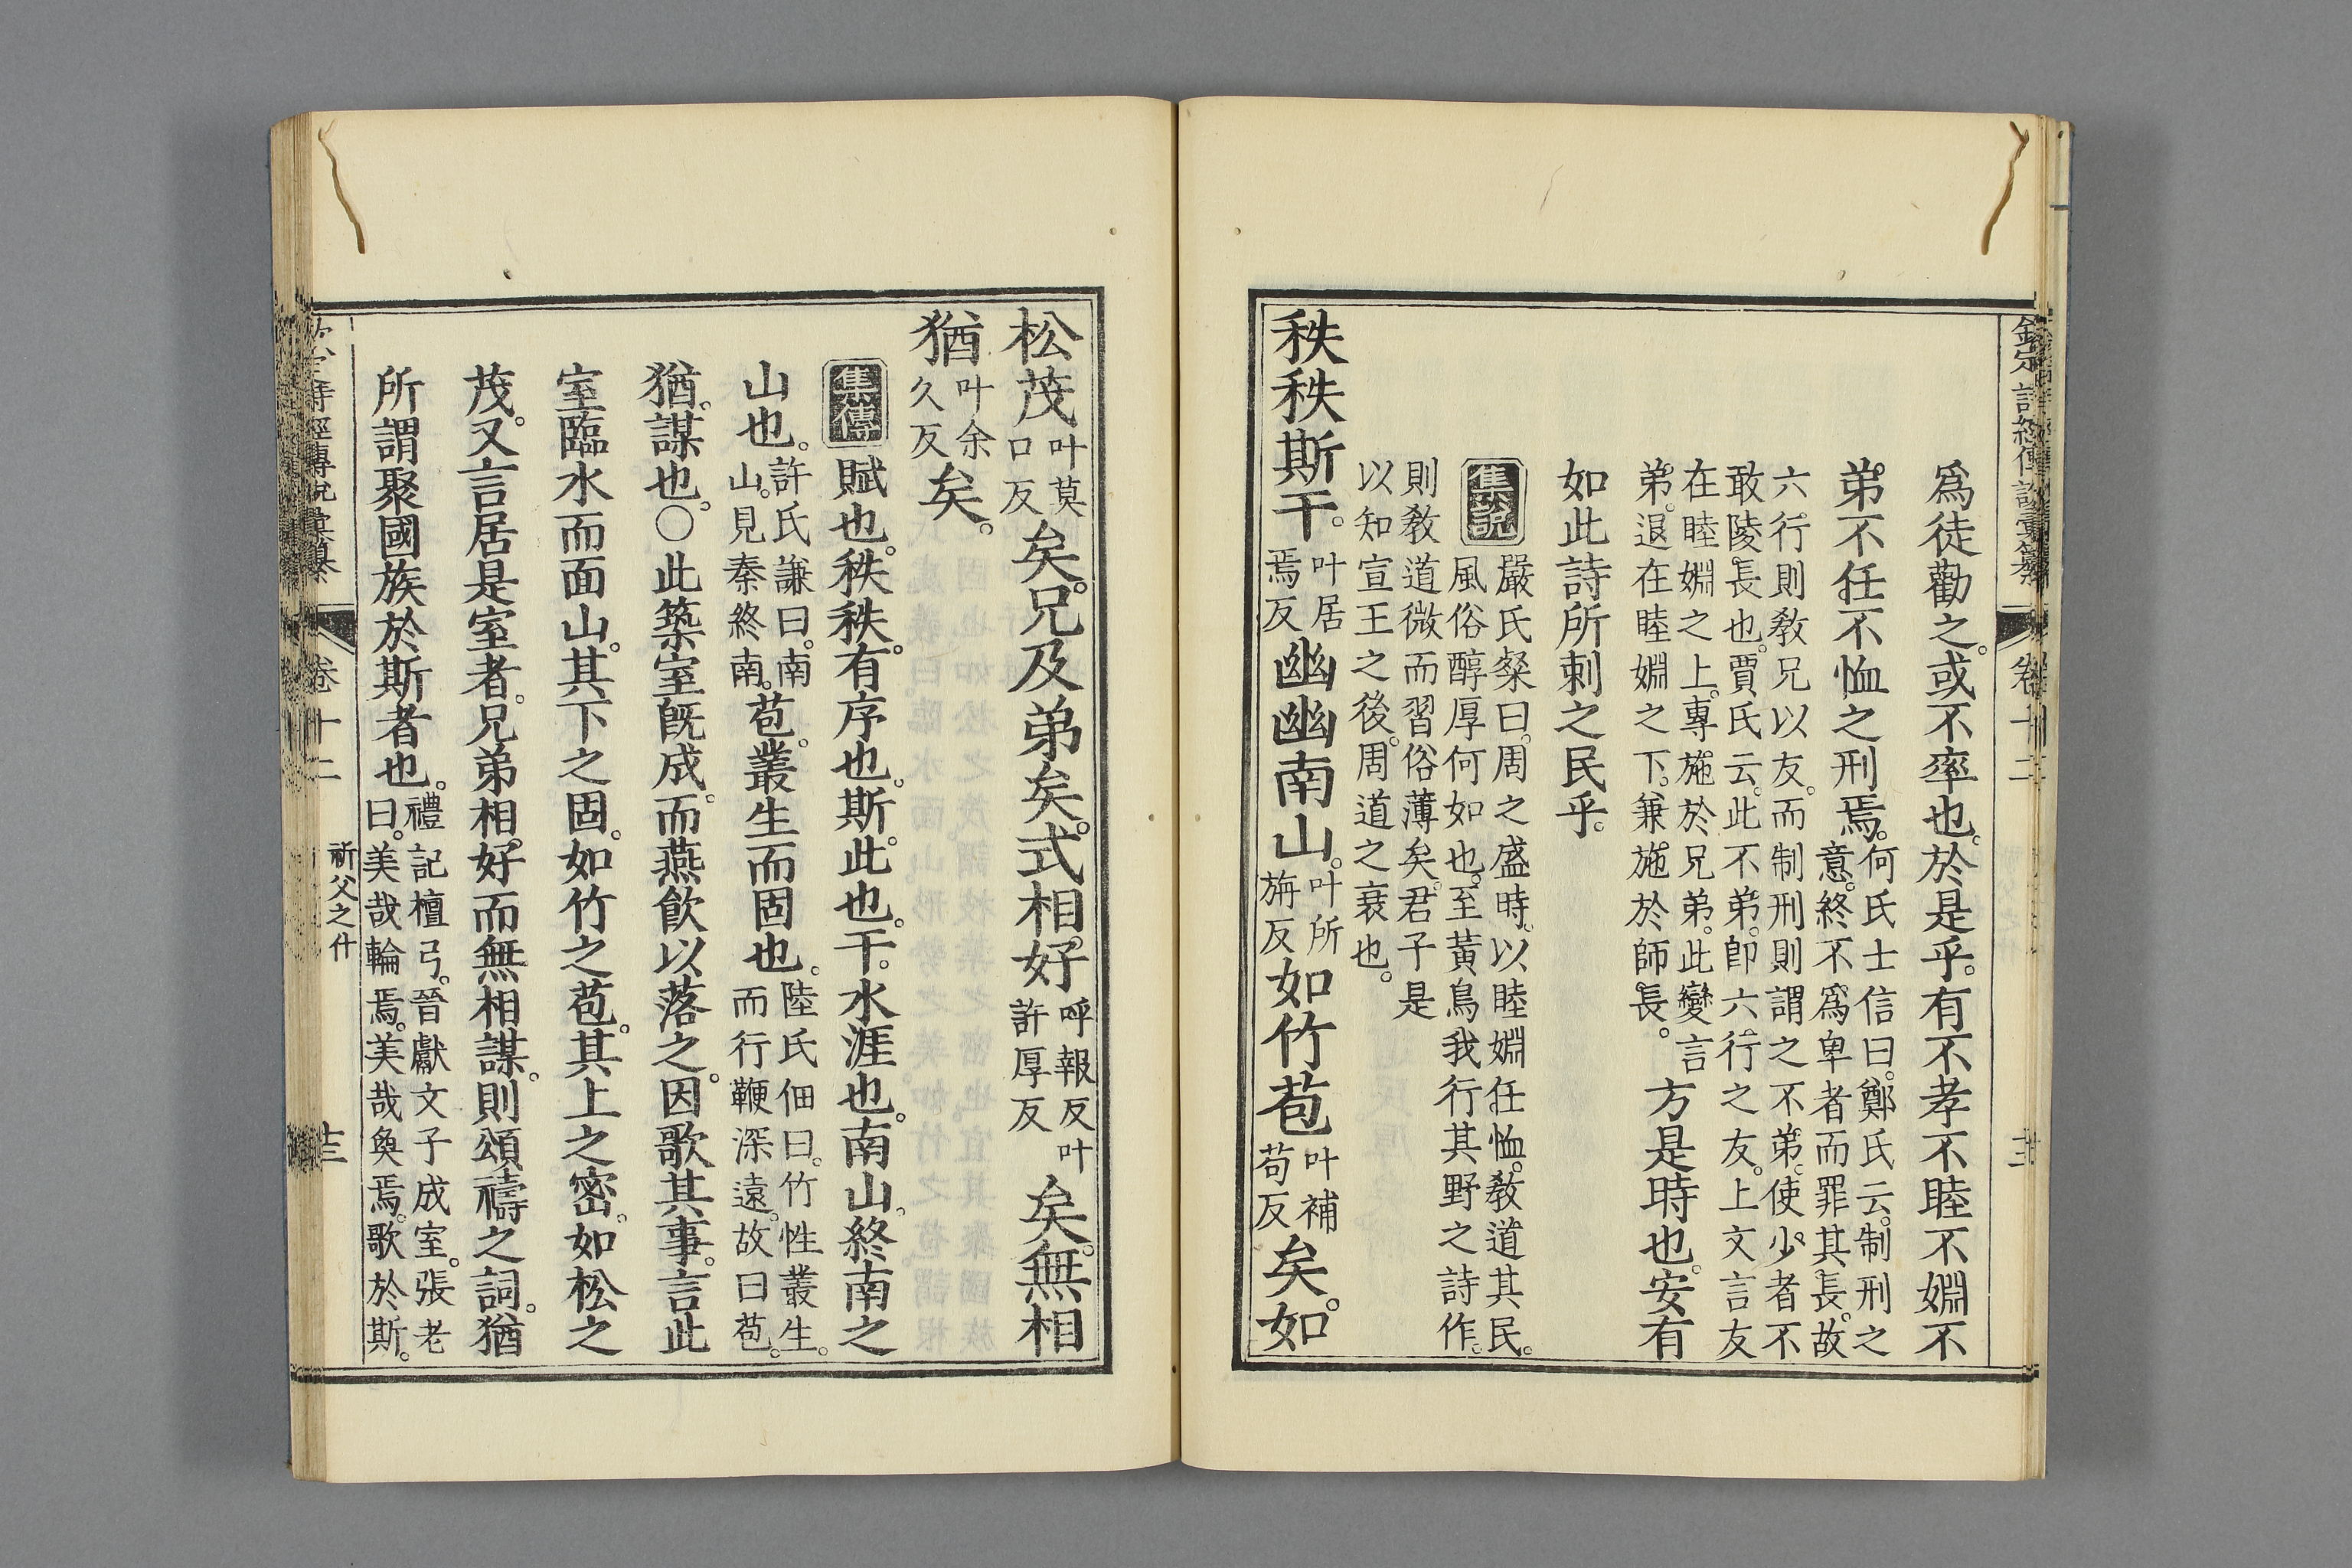 欽定詩經傳說彙纂
卷十二
爲徒勸之。或不率也。於是乎。有不孝不睦不婣不
弟。不任不恤之刑焉。何氏士信曰。鄭氏云。制刑之
意。終不爲卑者而罪其長。故
六行則敎兄以友。而制刑則謂之不弟。使少者不
敢陵長也。賈氏云。此不弟。卽六行之友。上文言友
在睦婣之上。專施於兄弟。此變言
弟。退在睦婣之下。兼施於師長。方是時也。安有
如此詩所刺之民乎。
集說
嚴氏粲曰。周之盛時。以睦婣任恤。敎道其民。
風俗醇厚何如也。至黃鳥我行其野之詩作。
則敎道微而習俗薄矣。君子是
以知宣王之後。周道之衰也。
秩秩斯干。叶居焉反幽幽南山。叶所旃反如竹苞叶補苟反矣。如
松茂叶莫口反矣。兄及弟矣。式相好呼報反叶許厚反矣。無相
猶叶余久反矣。
集傳
賦也。秩秩。有序也。斯。此也。干。水涯也。南山。終南之
山也。許氏謙曰。南山。見秦終南。苞。叢生而固也。陸氏佃曰。竹性叢生。而行鞭深遠。故曰苞。
猶。謀也。○此築室旣成。而燕飮以落之。因歌其事。言此
室臨水而面山。其下之固。如竹之苞。其上之密。如松之
茂。又言居是室者。兄弟相好而無相謀。則頌禱之詞。猶
所謂聚國族於斯者也。禮記檀弓。晉獻文子成室。張老曰。美哉輪焉。美哉奐焉。歌於斯。
卷十二
祈父之什